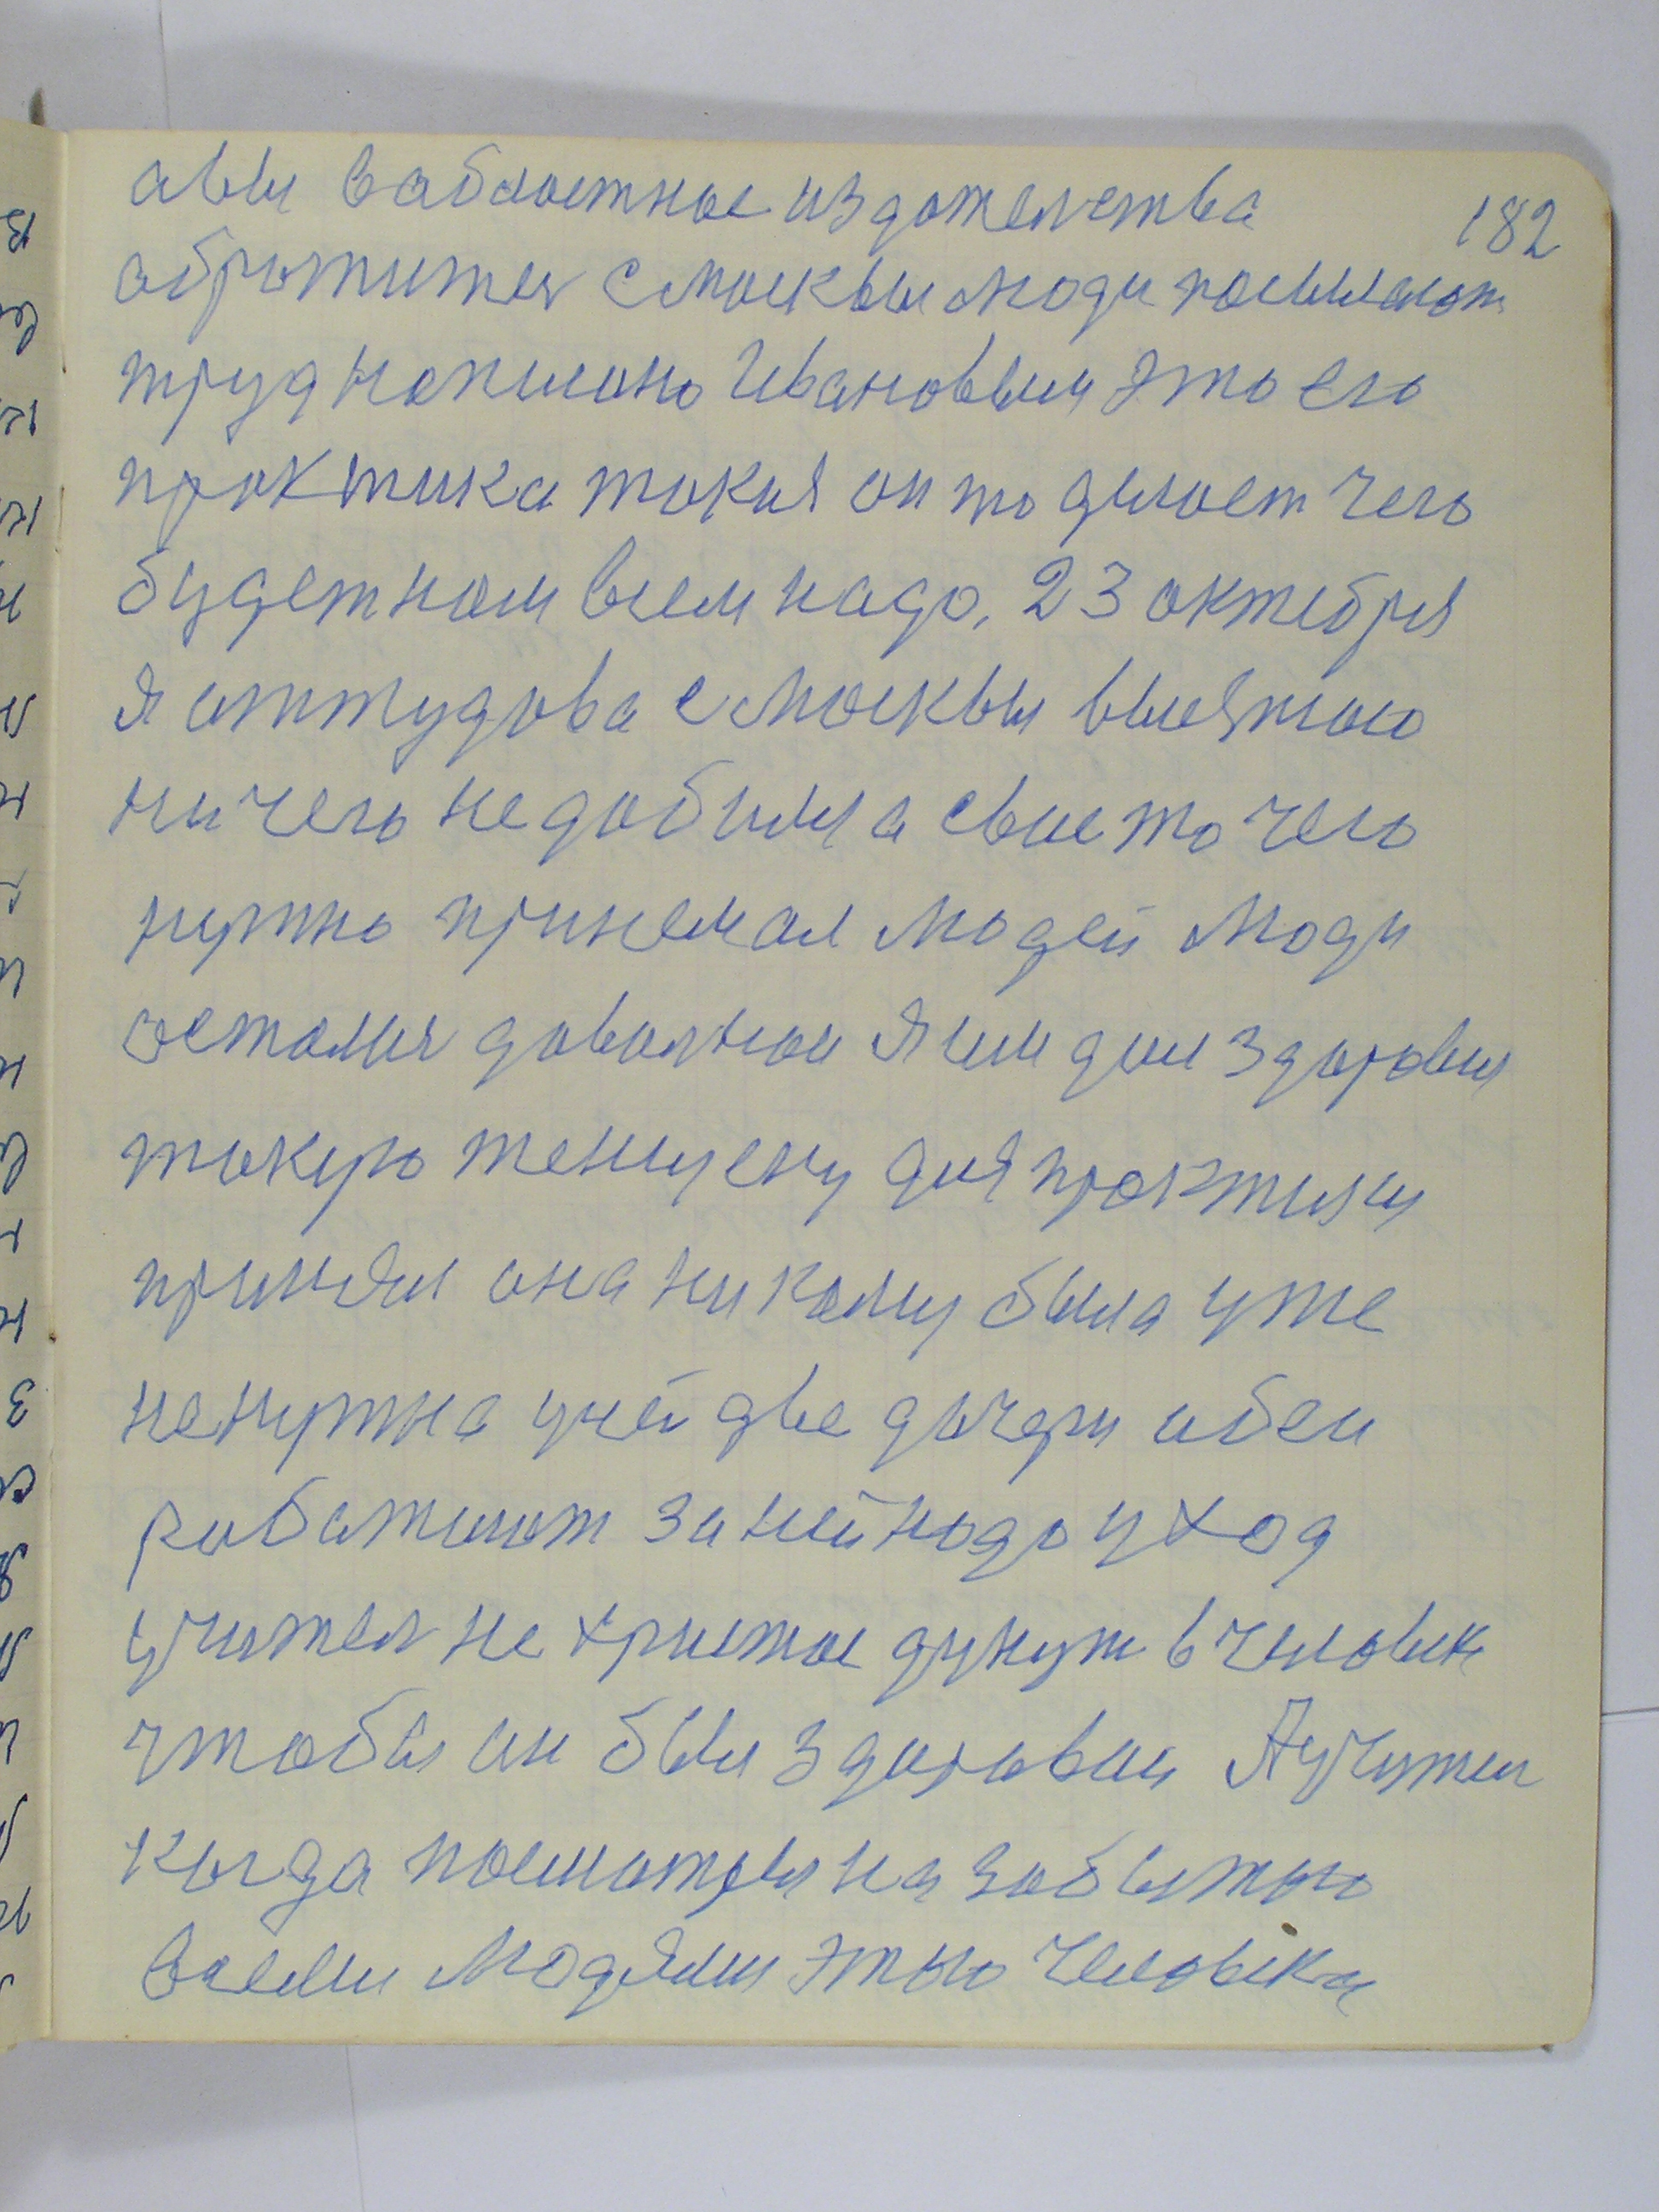 182
авы вабластное издателства
абратитес смосквы люди посылают
труд написано Ивановым это его
практика такая он то делает чего
будет нам всем надо, 23 октебря
я оттудова с Москвы
ничего недобилса свое то чего
нужно принемал людей люди
остались довольнои я им дал здоровия
такую женщену для практики
принял она никому была уже
ненужна уней две дочери обеи
работают за ней надо уход
учител не христос дунут вчеловек
чтобы он был здоровои А учител
когда посматрел на забытого
всеми людями этого человека